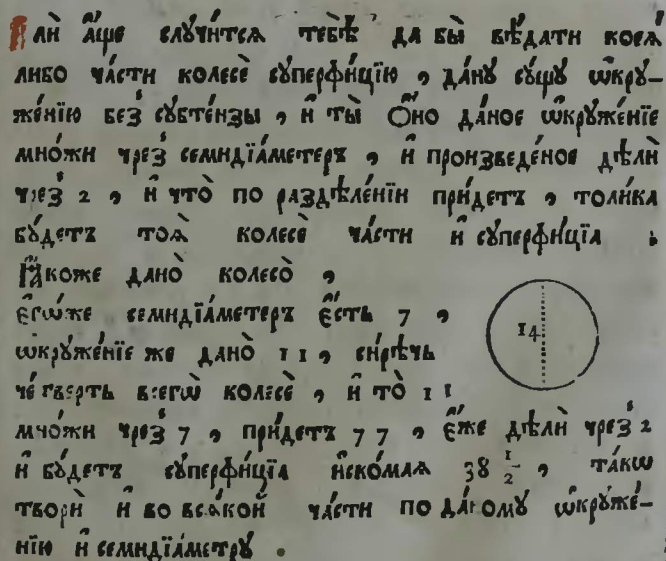 И҆лѝ а҆́ще слꙋчи́тсѧ тебѣ̀ да бы̀ вѣ́дати коеѧ̀
либо ча́сти колесѐ сꙋперфи́цїю , да́нꙋ сꙋ́щꙋ ѡ҆крꙋ-
же́нїю беᲂ҆зъ сꙋбте́нзы , и҆ ты̀ О҆́но да́ное ѡ҆крꙋже́нїе
мно́жи чрез̾ семидїа́метеръ , и҆ произведе́ное дѣлѝ
чрез̾ 2 , и҆ что̀ по раздѣле́нїи прїи́детъ , толи́ка
бꙋ́детъ тоѧ̀ колесѐ ча́сти и҆ сꙋперфи́цїа .
Ꙗ҆́коже дано̀ колесо̀ ,
є҆гѡ́же семидїа́метеръ є҆́сть 7 ,
ѡ҆крꙋже́нїе же дано̀ 11 , си́рѣчь
че́тверть всегѡ̀ колесѐ , и҆ то̀ 11
14
мно́жи чрез̾ 7 , прїи́детъ 77 , є҆́же дѣлѝ чрез̾ 2
и҆ бꙋ́детъ сꙋперфи́цїа и҆ско́маѧ 38 1/2 , та́кѡ
творѝ и҆ во всѧ́кой ча́сти по да́ному ѡ҆крꙋже́-
нїю и҆ семидїа́метрꙋ .